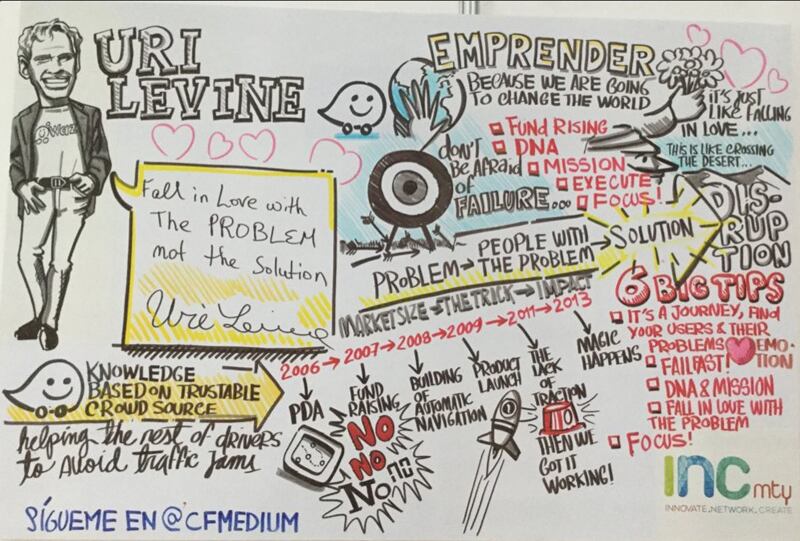 URI
LEVINE
waze
Fall in Love with
The PROBLEM
not the Solution
Uri Levine
KNOWLEDGE
BASED ON TRUSTABLE
CROWD SOURCE
helping the rest of drivers
to avoid traffic jams
SÍGUEME EN @CFMEDIUM
EMPRENDER
BECAUSE WE ARE GOING
TO CHANGE THE WORLD
DON'T
BE AFRAID
OF
FAILURE...
FUND RISING
DNA
MISSION
EXECUTE
FOCUS!
IT'S JUST
LIKE FALLING
IN LOVE...
THIS IS LIKE CROSSING
THE DESERT...
PROBLEM → PEOPLE WITH
THE PROBLEM → SOLUTION
DIS-
RUP
TION
MARKET SIZE → THE TRICK → IMPACT
2006 → 2007 → 2008 → 2009 → 2011 → 2013
PDA
FUND
RAISING
NO
NO
NO
NO
BUILDING
OF
AUTOMATIC
NAVIGATION
PRODUCT
LAUNCH
THE
LACK
OF
TRACTION
THEN WE
GOT IT
WORKING!
MAGIC
HAPPENS
6 BIG TIPS
IT'S A JOURNEY, FIND
YOUR USERS & THEIR
PROBLEMS EMO-
TION
FAIL FAST!
DNA & MISSION
FALL IN LOVE WITH
THE PROBLEM
FOCUS!
INC mty
INNOVATE.NETWORK.CREATE